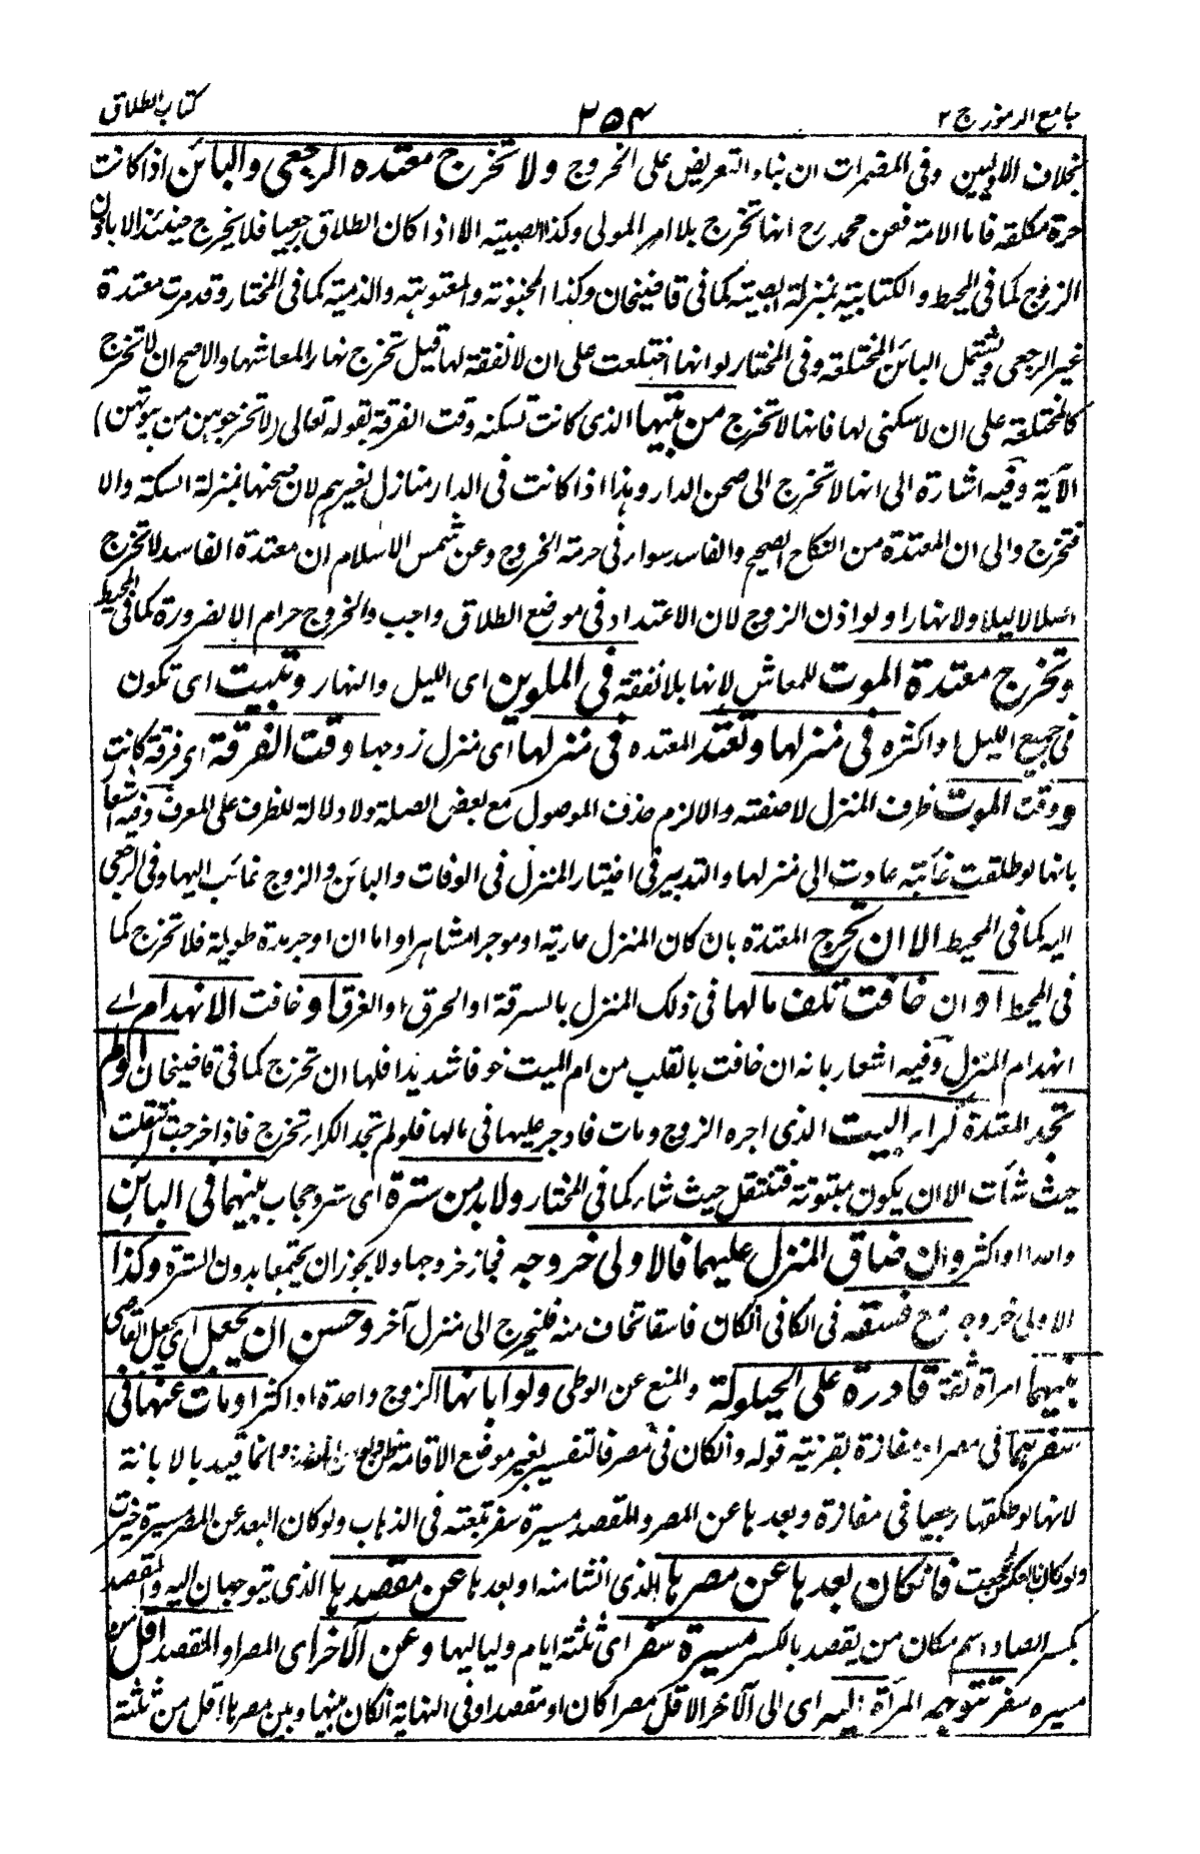 جامع الرموز ج ٢ ٢٥٤ كتاب الطلاق
بخلاف الاوليين وفى المضمرات ان بناء التعريض على الخروج ولا تخرج معتدة الرجعى والبائن اذا كانت
حرة مكلفة فاما الامة فعن محمد رح انها تخرج بلا امر المولى وكذا الصبية الا اذا كان الطلاق رجعيا فلا يخرج حينئذ الا باذن
الزوج كما فى المحيط والكتابية بمنزلة الصبية كما فى قاضيخان وكذا المجنونة والمعتوهة والذمية كما فى المختار وقد مرت معتدة
غير الرجعى ويشتمل البائن المختلعة وفى المختار لو انها اختلعت على ان لا نفقة لها قيل تخرج نهارا لمعاشها والاصح ان لا تخرج
كالمختلعة على ان لا سكنى لها فانها لا تخرج من بيتها الذى كانت تسكنه وقت الفرقة بقوله تعالى (لا تخرجوهن من بيوتهن)
الآية وفيه اشارة الى انها لا تخرج الى صحن الدار وهذا اذا كانت فى الدار منازل لغيرهم لان صحنها بمنزلة السكة والا
فتخرج والى ان المعتدة من النكاح الصحيح والفاسد سواء فى حرمة الخروج وعن شمس الاسلام ان معتدة الفاسد لا تخرج
اصلا لا ليلا ولا نهارا ولو اذن الزوج لان الاعتداد فى موضع الطلاق واجب والخروج حرام الا لضرورة كما فى المحيط
وتخرج معتدة الموت للمعاش لانها بلا نفقة فى الملوين اى الليل والنهار وتبيت اى تكون
فى جميع الليل او اكثره فى منزلها وتعتد المعتدة فى منزلها اى منزل زوجها وقت الفرقة اى فرقة كانت
ووقت الموت ظرف المنزل لا صفته والا لزم حذف الموصول مع بعض الصلة ولا دلالة للظرف على المعرف وفيه اشعار
بانها لو طلقت غائبة عادت الى منزلها والتدبير فى اختيار المنزل فى الوفات والبائن والزوج غائب اليها وفى الرجعى
اليه كما فى المحيط الا ان تخرج المعتدة بان كان المنزل عارية او موجرا مشاهرا واما ان اوجر مدة طويلة فلا تخرج كما
فى المحيط او ان خافت تلف مالها فى ذلك المنزل بالسرقة او الحرق او الغرق او خافت الانهدام اے
انهدام المنزل وفيه اشعار بانه ان خافت بالقلب من ام الميت خوفا شديدا فلها ان تخرج كما فى قاضيخان او لم
تجد المعتدة كراء البيت الذى اجره الزوج ومات فاوجر عليها فى مالها فلو لم تجد الكراء تخرج فاذا خرجت انتقلت
حيث شأت الا ان يكون مبتوتة فتنتقل حيث شاء كما فى المختار ولا بد من سترة اى ستر وحجاب بينهما فى البائن
واحدا او اكثر وان ضاق المنزل عليهما فالاولى خروجه فجاز خروجها ولا يجوز ان يجتمعا بدون السترة وكذا
الاولى خروجه مع فسقه فى الكافى ان كان فاسقا تخاف منه فليخرج الى منزل آخر وحسن ان يجعل اى يجعل القاضى
بينهما امرأة ثقة قادرة على الحيلولة والمنع عن الوطى ولو ابانها الزوج واحدة او اكثر او مات عنها فى
سفرهما فى مصر او مفازة بقرينة قوله وان كان فى مصر فالتفسير بغير موضع الاقامة وانما قيد بالابانة
لانها لو طلقها رجعيا فى مفازة وبعدها عن المصر والمقصد مسيرة سفر تبعته فى الذهاب ولو كان البعد عن المصر مسيرة خيرت
ولو كان بالعكس رجعت فان كان بعدها عن مصرها الذى انشا منه او بعدها عن مقصدها الذى يتوجهان اليه والمقصد
بكسر الصاد اسم مكان من يقصد بالكسر مسيرة سفر اى ثلثة ايام ولياليها وعن الآخر اى المصر او المقصد اقل من
مسيرة سفر تتوجه المرأة اليه اى الى الآخر الاقل مصرا كان او مقصدا وفى النهاية ان كان بينها وبين مصرها اقل من ثلثة